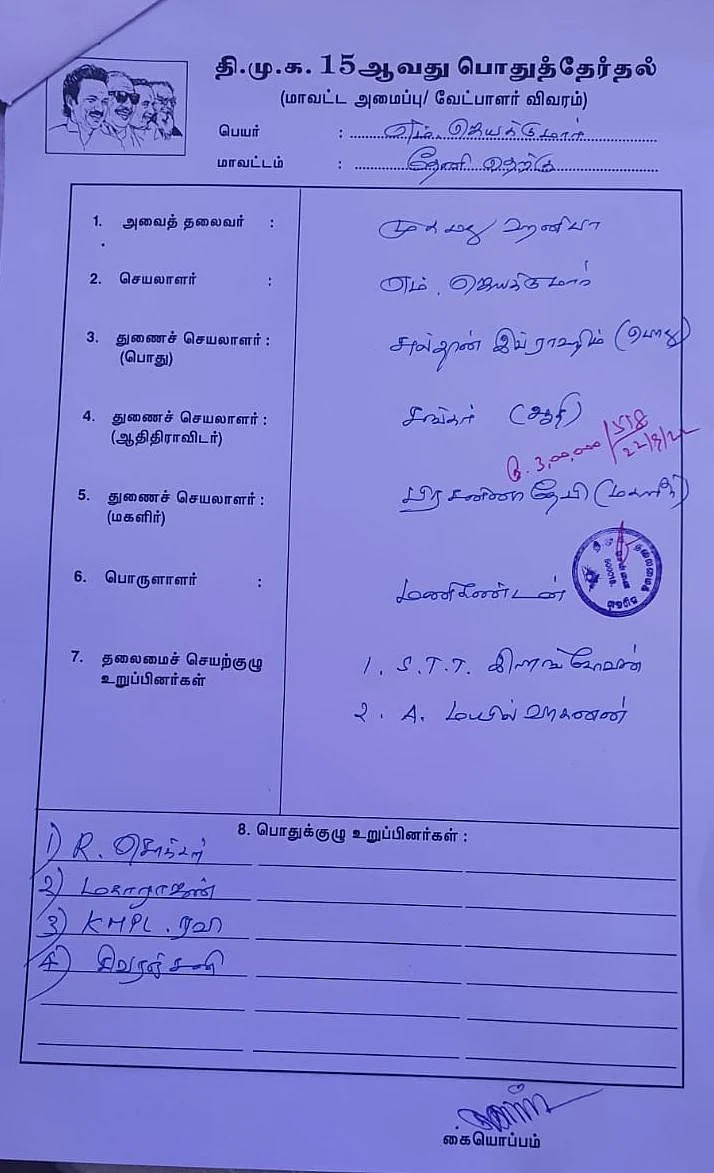 தி.மு.க. 15ஆவது பொதுத்தேர்தல்
(மாவட்ட அமைப்பு/ வேட்பாளர் விவரம்)
பெயர் : எம். ஜெயக்குமார்
மாவட்டம் : தேனி தெற்கு
1. அவைத் தலைவர் : முகமது ஹனிபா
2. செயலாளர் : எம். ஜெயக்குமார்
3. துணைச் செயலாளர் : சுல்தான் இப்ராஹிம் (பொது)
(பொது)
4. துணைச் செயலாளர் : சங்கர் (ஆதி)
(ஆதிதிராவிடர்)
ரூ. 3,00,000/518
22/9/22
5. துணைச் செயலாளர் : பிரசன்னா தேவி (மகளிர்)
(மகளிர்)
6. பொருளாளர் : மணிகண்டன்
7. தலைமைச் செயற்குழு உறுப்பினர்கள்
1. S.T.T. இளங்கோவன்
2. A. மயில்வாகனன்
8. பொதுக்குழு உறுப்பினர்கள் :
1) R. சொக்கர்
2) மகாராஜன்
3) KMPL. ரவி
4) சிவரஞ்சனி
கையொப்பம்